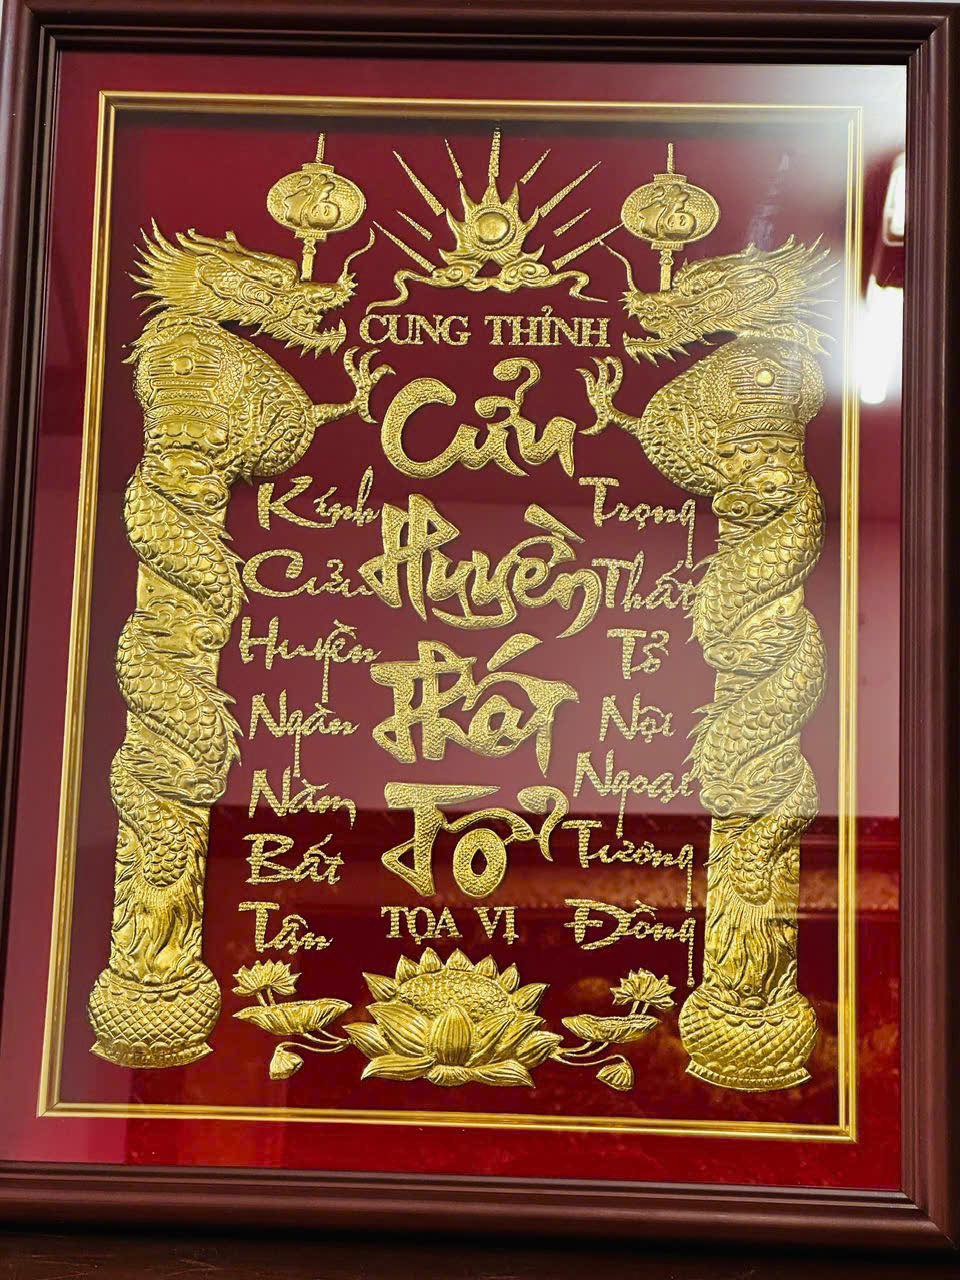 福
福
CUNG THỈNH
Cửu
Huyền
Thất
Tổ
TỌA VỊ
Kính
Cửu
Huyền
Ngàn
Năm
Bất
Tận
Trọng
Thất
Tổ
Nội
Ngoại
Tương
Đồng